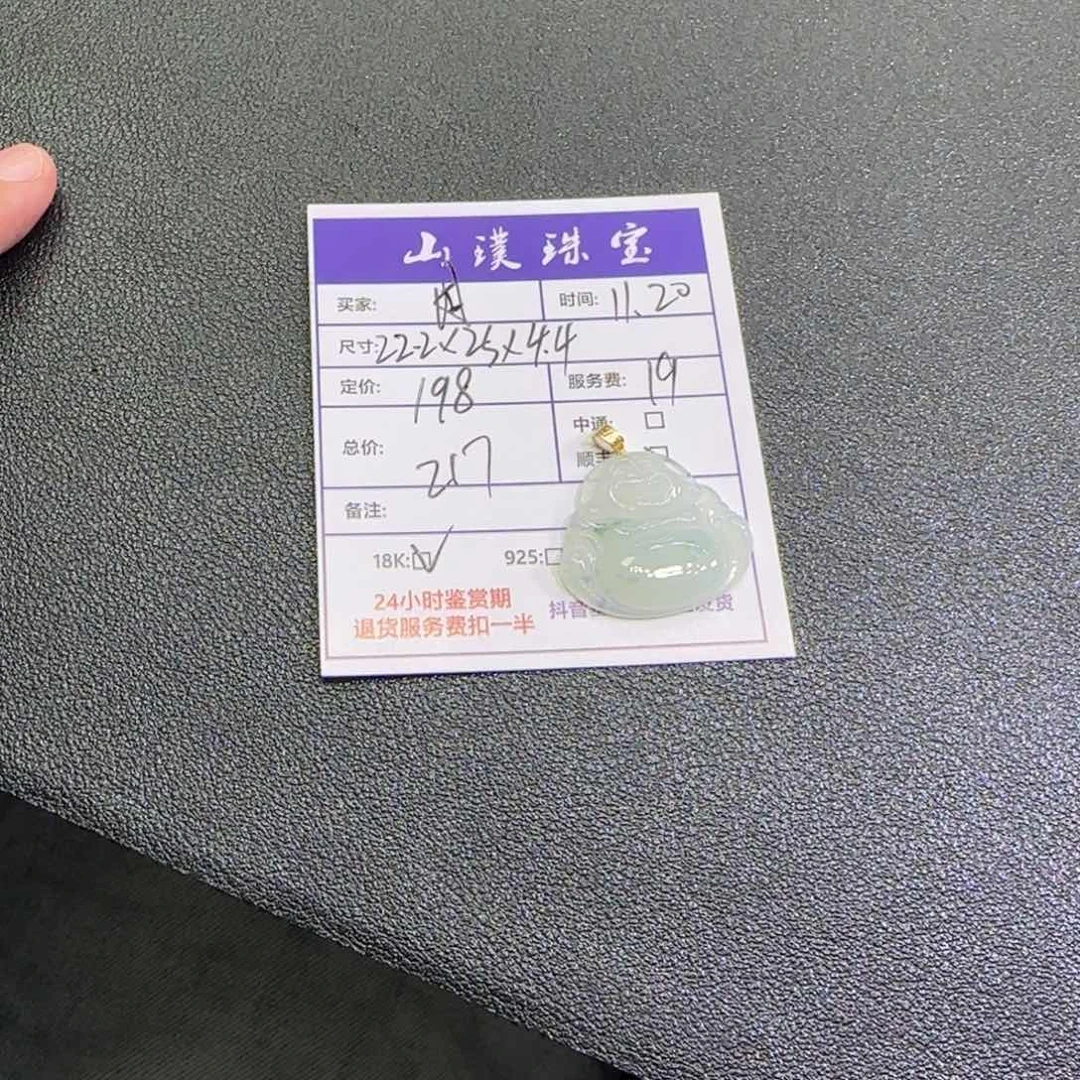 山璞珠宝
买家: 时间: 11.20
尺寸: 22.2×25×4.4
定价: 198 服务费: 19
中通: □
总价: 217 顺丰
备注:
18K: ☑ 925: □
24小时鉴赏期 抖音
退货服务费扣一半 发货